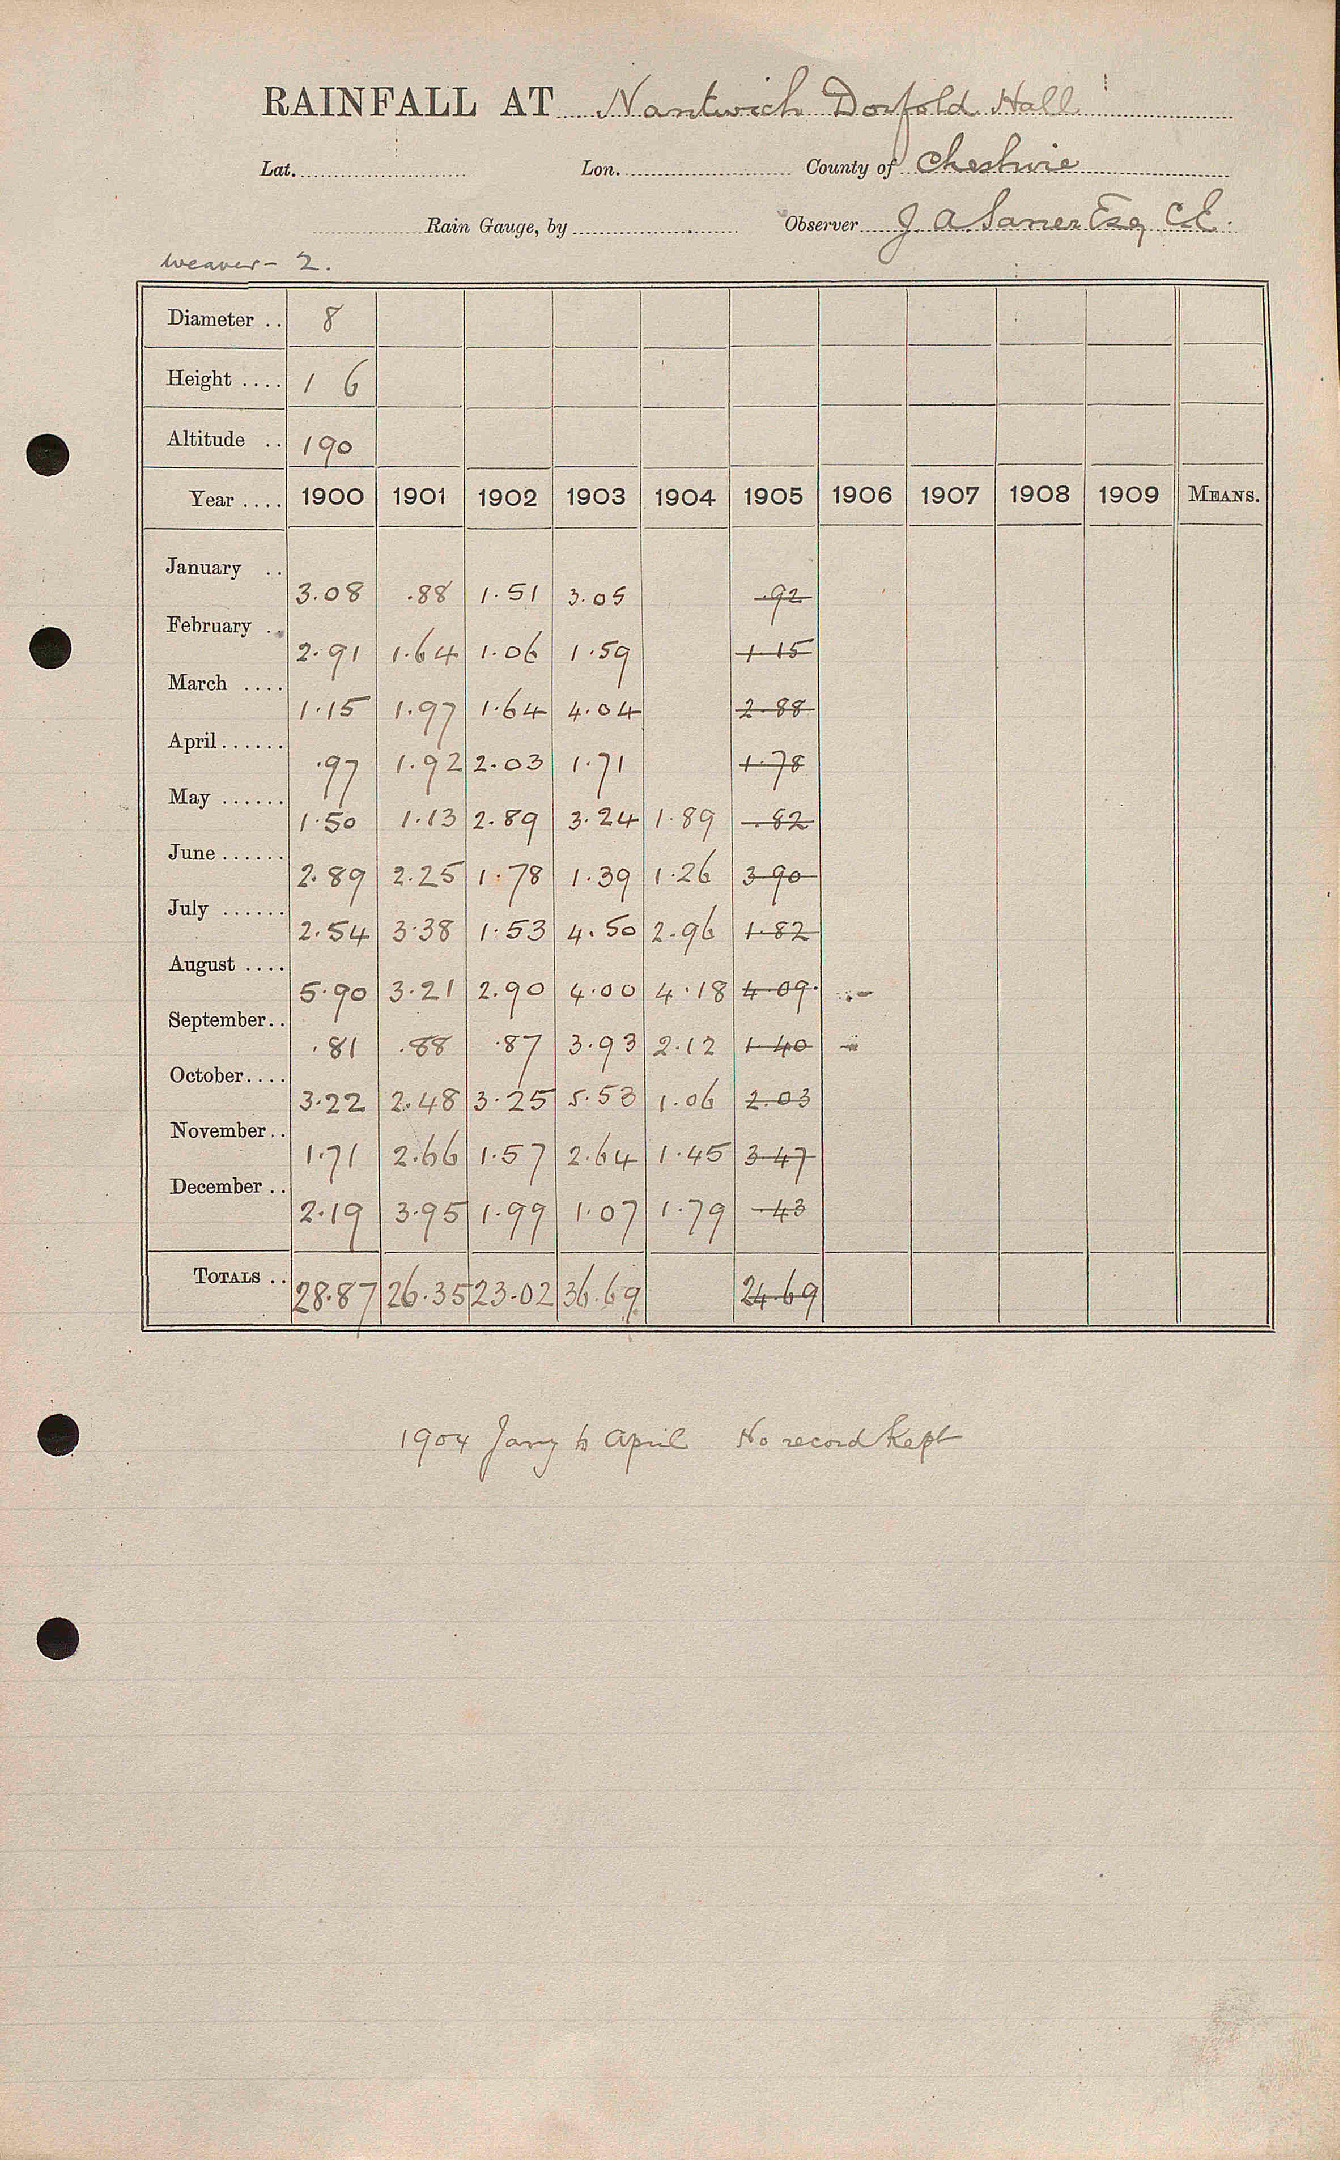 RAINFALL AT Nantwich Dorfold Hall
Lat. Lon. County of Cheshire
Rain Gauge, by Observer J. A. Saner Esq C.E.
Weaver - 2.
Diameter .. 8
Height .... 1 6
Altitude .. 190
Year .... 1900 1901 1902 1903 1904 1905 1906 1907 1908 1909 MEANS.
January .. 3.08 .88 1.51 3.05 .92
February .. 2.91 1.64 1.06 1.59 1.15
March .... 1.15 1.97 1.64 4.04 2.88
April ...... .97 1.92 2.03 1.71 1.78
May ...... 1.50 1.13 2.89 3.24 1.89 .82
June ...... 2.89 2.25 1.78 1.39 1.26 3.90
July ...... 2.54 3.38 1.53 4.50 2.96 1.82
August .... 5.90 3.21 2.90 4.00 4.18 4.09
September .. .81 .88 .87 3.93 2.12 1.40
October .... 3.22 2.48 3.25 5.53 1.06 2.03
November .. 1.71 2.66 1.57 2.64 1.45 3.47
December .. 2.19 3.95 1.99 1.07 1.79 .43
TOTALS .. 28.87 26.35 23.02 36.69 24.69
1904 Jany to April No record kept